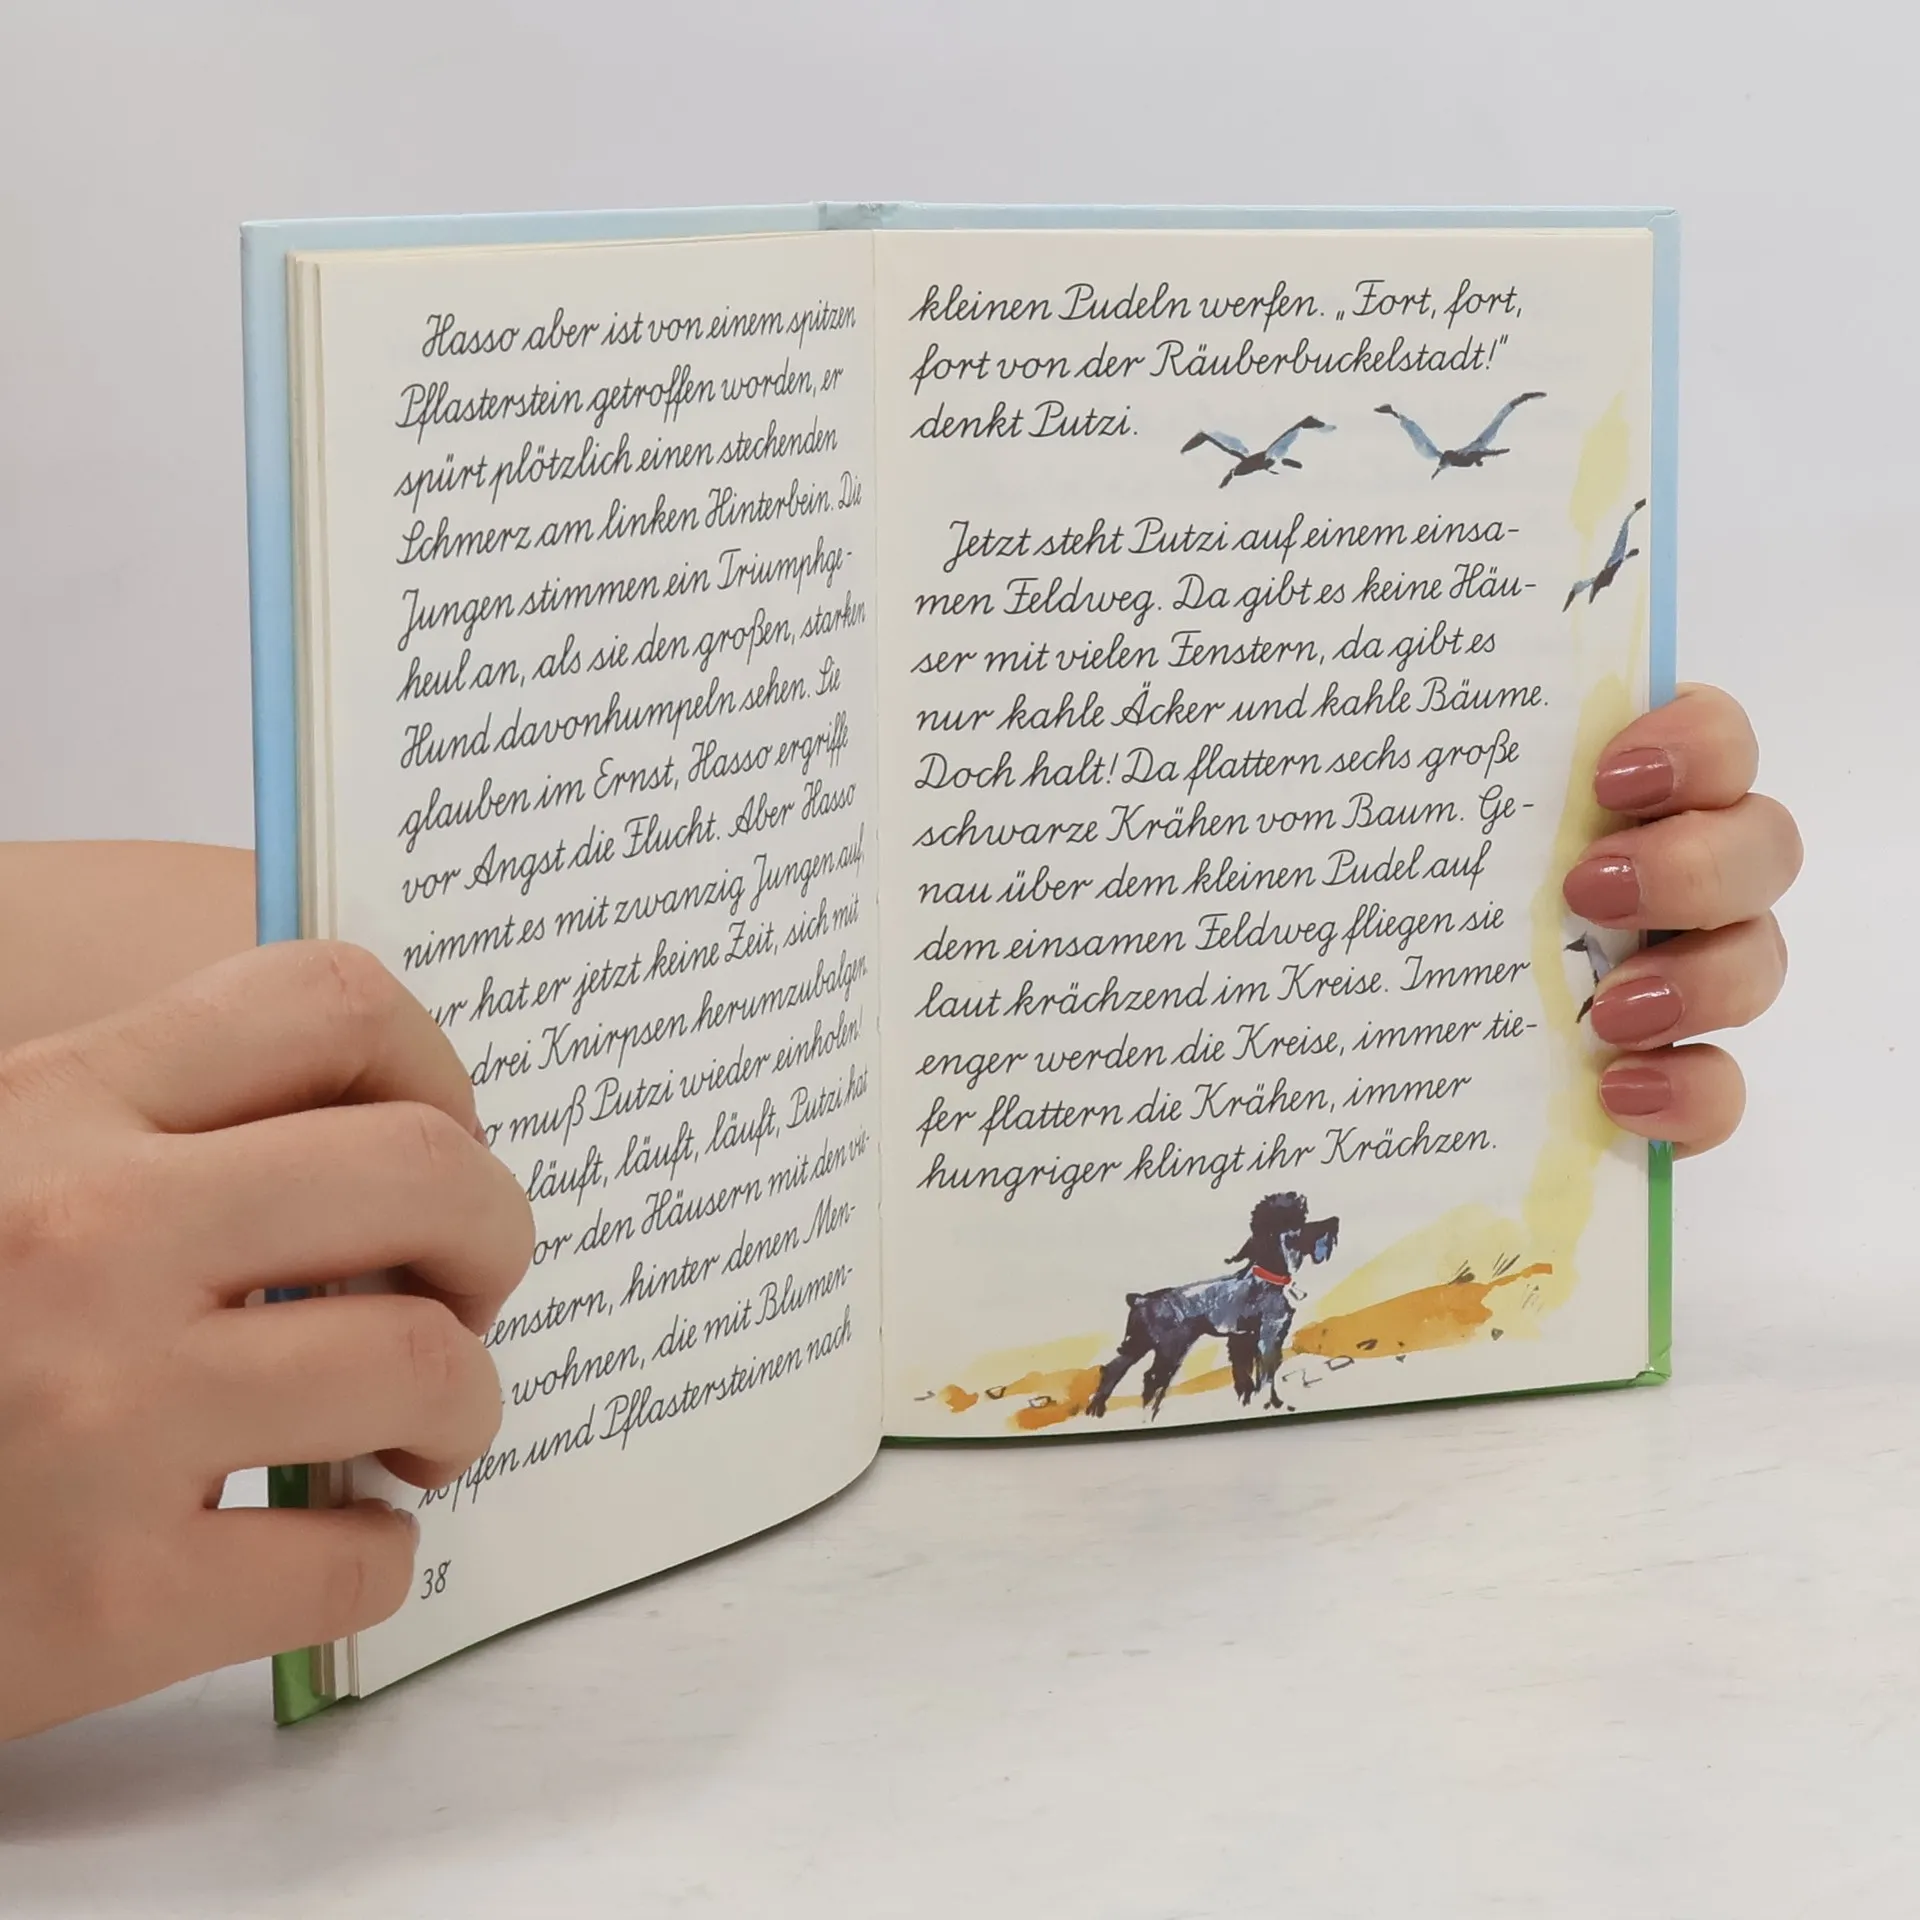 Hasso aber ist von einem spitzen
Pflasterstein getroffen worden, er
spürt plötzlich einen stechenden
Schmerz am linken Hinterbein. Die
Jungen stimmen ein Triumphge-
heul an, als sie den großen, starken
Hund davonhumpeln sehen. Sie
glauben im Ernst, Hasso ergriffe
vor Angst die Flucht. Aber Hasso
nimmt es mit zwanzig Jungen auf,
hat er jetzt keine Zeit, sich mit
drei Knirpsen herumzubalgen.
muß Putzi wieder einholen!
läuft, läuft, läuft, Putzi hat
den Häusern mit den vie-
hinter denen Men-
wohnen, die mit Blumen-
und Pflastersteinen nach
38
kleinen Pudeln werfen. „Fort, fort,
fort von der Räuberbuckelstadt!"
denkt Putzi.
Jetzt steht Putzi auf einem einsa-
men Feldweg. Da gibt es keine Häu-
ser mit vielen Fenstern, da gibt es
nur kahle Äcker und kahle Bäume.
Doch halt! Da flattern sechs große
schwarze Krähen vom Baum. Ge-
nau über dem kleinen Pudel auf
dem einsamen Feldweg fliegen sie
laut krächzend im Kreise. Immer
enger werden die Kreise, immer tie-
fer flattern die Krähen, immer
hungriger klingt ihr Krächzen.